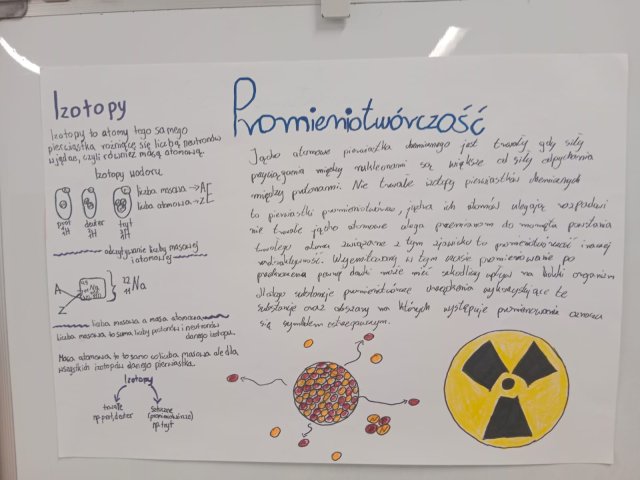 Izotopy
Izotopy to atomy tego samego
pierwiastka różniące się liczbą neutronów
w jądrze, czyli również masą atomową.
Izotopy wodoru
liczba masowa → A
liczba atomowa → Z
prot deuter tryt
odczytywanie liczby masowej
i atomowej
A
Z
Na
22
11 Na
liczba masowa a masa atomowa
liczba masowa to suma liczby protonów i neutronów
danego izotopu.
Masa atomowa to to samo co liczba masowa ale dla
wszystkich izotopów danego pierwiastka.
Izotopy
trwałe
np. prot, deuter
Sztuczne
(promieniotwórcze)
np. tryt
Promieniotwórczość
Jądro atomowe pierwiastka chemicznego jest trwały gdy siły
przyciągania między nukleonami są większe od siły odpychania
między protonami. Nie trwałe izotopy pierwiastków chemicznych
to pierwiastki promieniotwórcze, jądra ich atomów ulegają rozpadowi
nie trwałe jądro atomowe ulega przemianom do momentu powstania
trwałego atomu związane z tym zjawisko to promieniotwórczość inaczej
radioaktywność. Wyemitowaną w tym czasie promieniowanie po
przekroczeniu pewnej dawki może mieć szkodliwy wpływ na ludzki organizm
dlatego substancje promieniotwórcze urządzenia wykorzystujące te
substancje oraz obszary na których występuje promieniowanie oznacza
się symbolem ostrzegawczym.